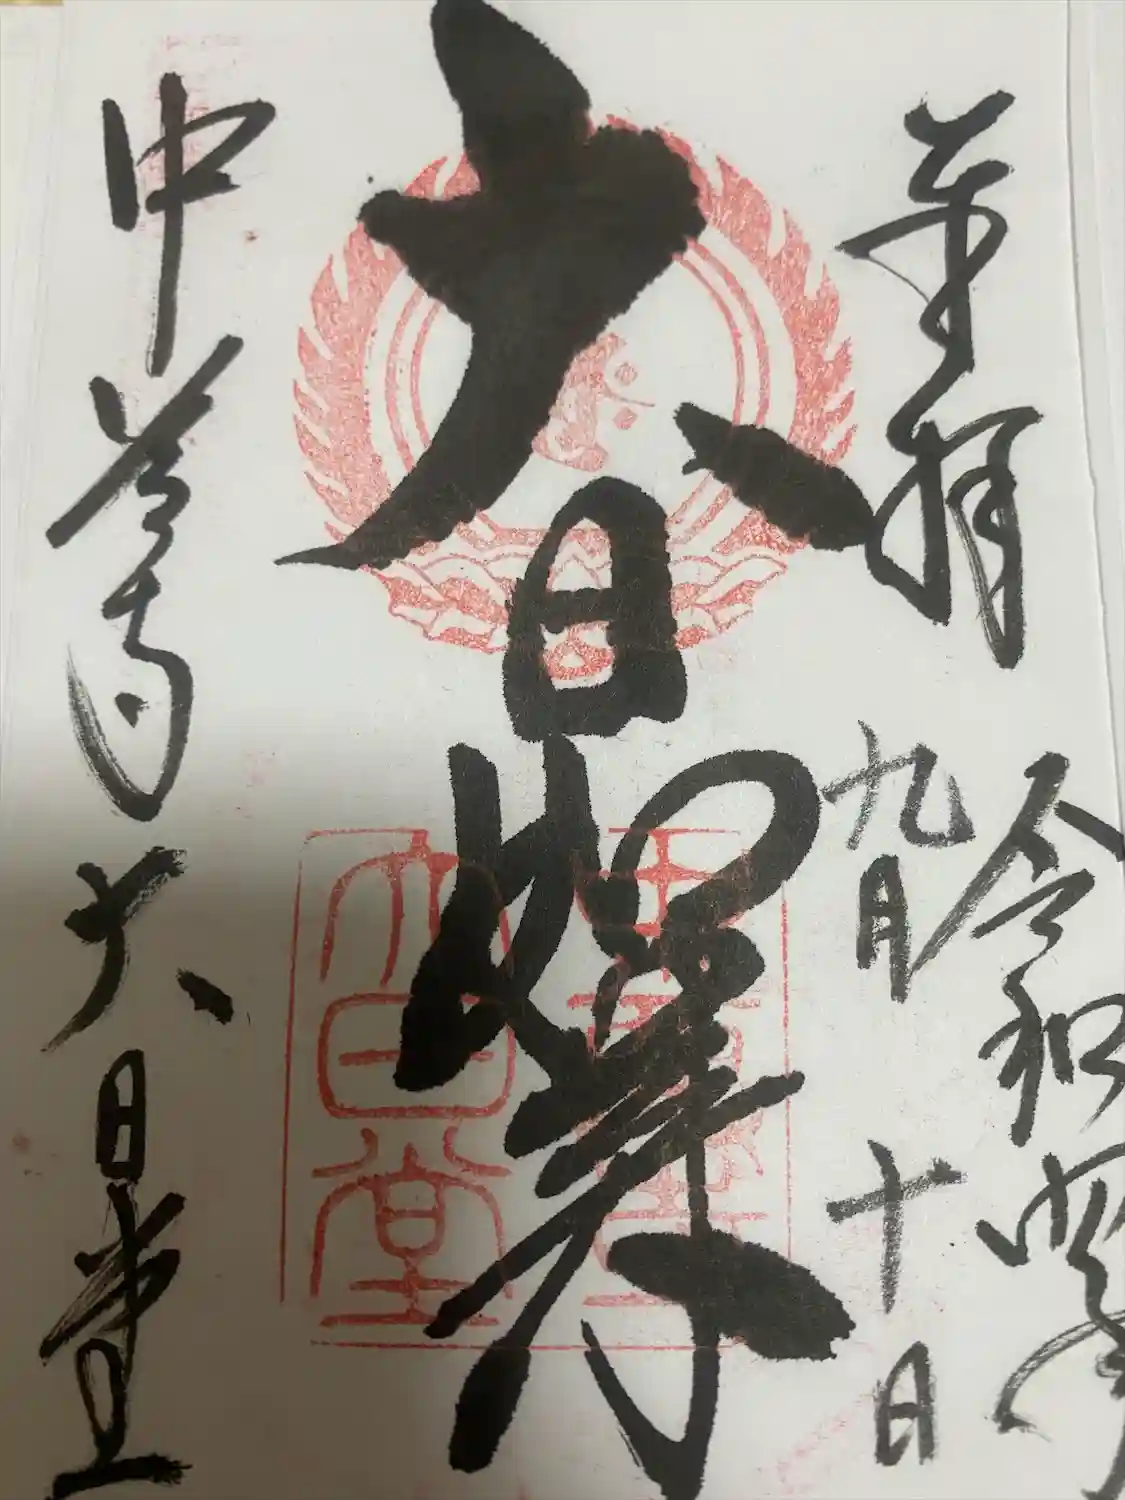 奉拝
令和
九月十日
大日如来
中尊寺大日堂
大日堂